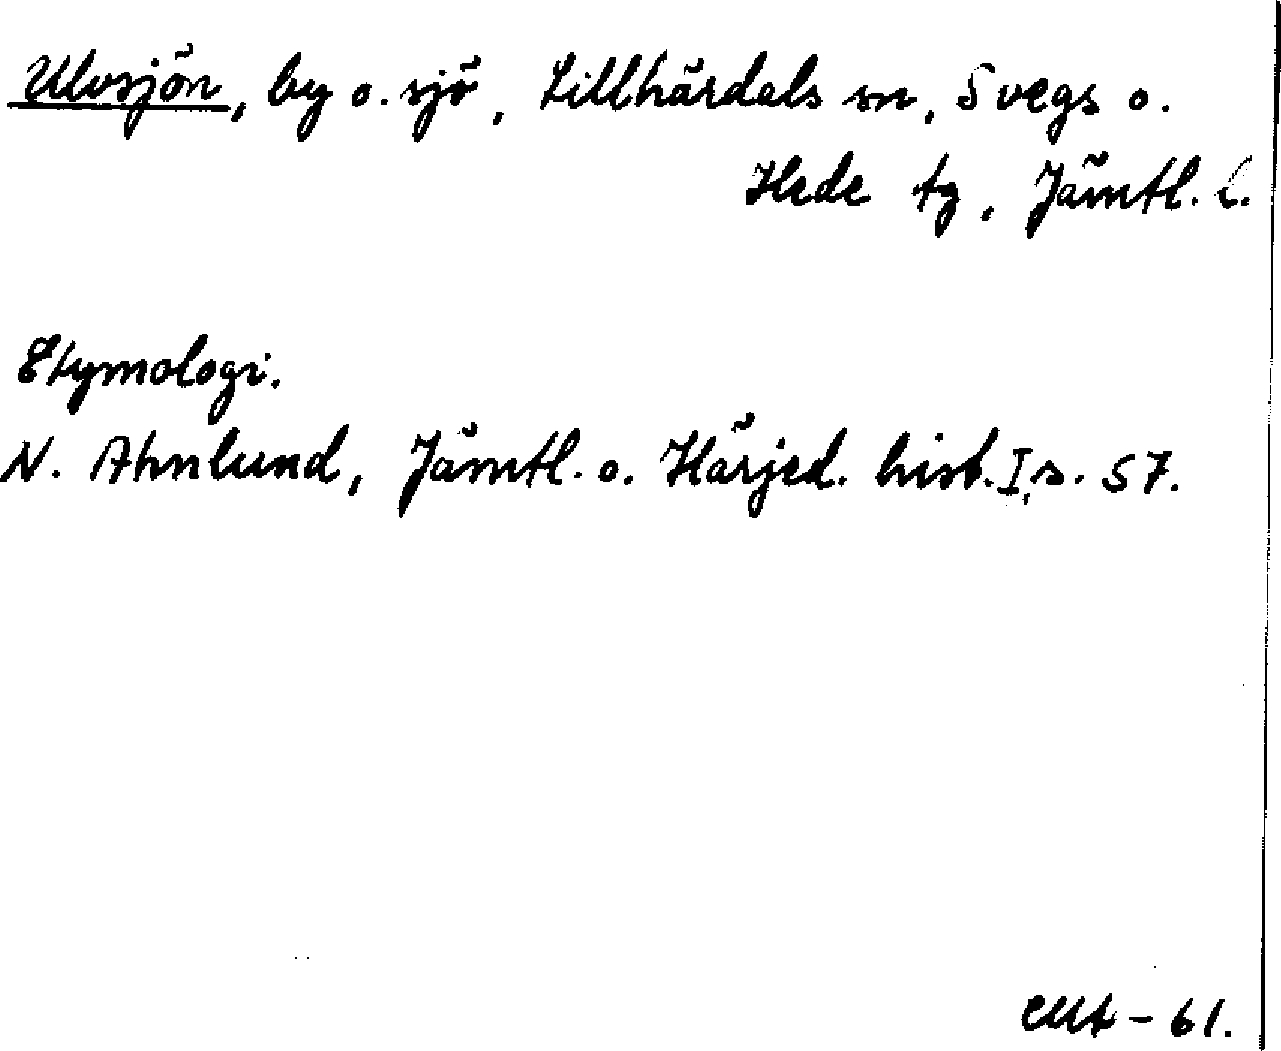 Ulvsjön, by o. sjö, Lillhärdals sn, Svegs o.
Hede tg, Jämtl. l.
Etymologi.
N. Ahnlund, Jämtl. o. Härjed. hist. I, s. 57.
- 61.